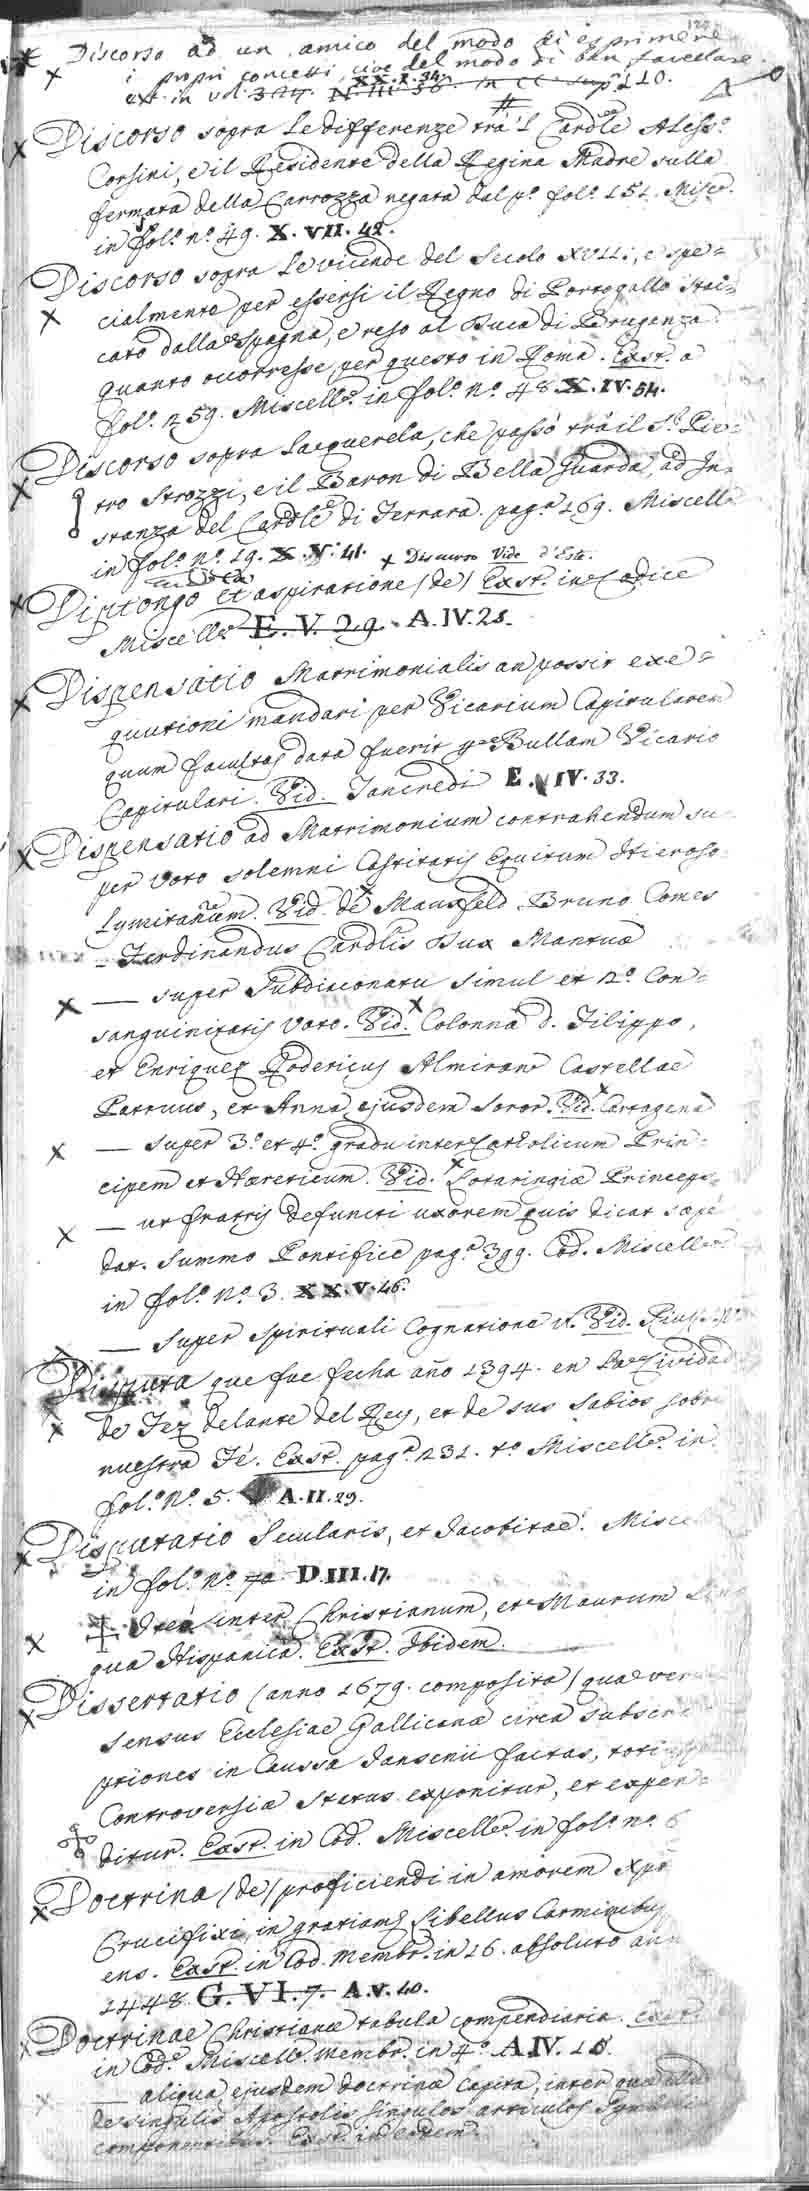 Discorso ad un amico del modo di esprimere
i propri concetti, cioè del modo di ben favellare.
ext. in vol. 374. XX.X.34. N. III. 56. in cc. sup. 110.
Discorso sopra le differenze trà 'l Cardle Aless.o
Corsini, e il Residente della Regina Madre sulla
fermata della Carrozza negata dal p.o fol.o 151. Misc.
in fol.o n.o 49. X. VII. 42.
Discorso sopra le vicende del Secolo XVII:, e spe=
cialmente per essersi il Regno di Portogallo stac=
cato dalla Spagna, e reso al Duca di Braganza
quanto occorresse per questo in Roma. Exst. a
fol.o 259. Miscell.o in fol.o n.o 48. X. IV. 54.
Discorso sopra la querela, che passò trà il S.r Pie=
tro Strozzi, e il Baron di Bella Guarda, ad In=
stanza del Cardle di Ferrara. pag.a 169. Miscell.
in fol.o n.o 19. X. V. 41. + Discurso Vide d'Este.
Diptongo et aspiratione (de) Exst. in Codice
Miscell.o E. V. 29. A. IV. 28.
Dispensatio Matrimonialis an possit exe=
quutioni mandari per Vicarium Capitularem
quum facultas data fuerit per Bullam Vicario
Capitulari. Vid. Tancredi E. IV. 33.
Dispensatio ad Matrimonium contrahendum su=
per voto solemni Castitatis Equitum Hieroso=
lymitanum. Vid. de Mansfeld Bruno Comes
- Ferdinandus Cardlis Dux Mantuæ
— super Subdiaconatu simul et 2.o Con=
sanguinitatis voto. Vid. Colonna d. Filippo,
et Enriquez Rodericus Almirans Castellae
Patruus, et Anna ejusdem Soror. Vid. Cartagena
— super 3.o et 4.o gradu inter Catholicum Prin=
cipem et Hæreticum. Vid. Lotaringiæ Princeps
— ut fratris defuncti uxorem quis ducat sæpe
dat. Summo Pontifice pag.a 399. Cod. Miscell.o
in fol.o N.o 3. XX. V. 46.
— super spirituali Cognatione Vid.
Disputa que fue fecha año 1394. en la Cividad
de Fez delante del Rey, et de sus Sabios sobre
nuestra Fé. Exst. pag.a 231. t.o Miscell.o in
fol.o N.o 5. A. II. 29.
Disputatio Secularis, et Jacobitae. Misce
in fol.o n.o 70. D. III. 17.
Item inter Christianum, et Maurum Lin
gua Hispanica. Exst. Ibidem.
Dissertatio (anno 1679. composita) qua ver
sensus Ecclesiae Gallicanæ circa subscri
ptiones in Caussa Jansenii factas, toti
Controversiæ status exponitur, et expen=
ditur. Exst. in Cod. Miscell.o in fol.o n.o 6
Doctrina (de) proficiendi in amorem Xpi
Crucifixi, in gratiam libellus Carminibus
ens. Exst. in Cod. membr. in 16. absoluto an
1448 G. VI. 7. A. V. 40.
Doctrinae Christianæ tabula compendiaria. Exst.
in Cod.e Miscell.o membr. in 4.o A. IV. 18.
— aliqua ejusdem doctrinæ Capita, inter quæ
de singulis Apostolis singulos articulos Symboli
componentibus. Exst. in eodem.